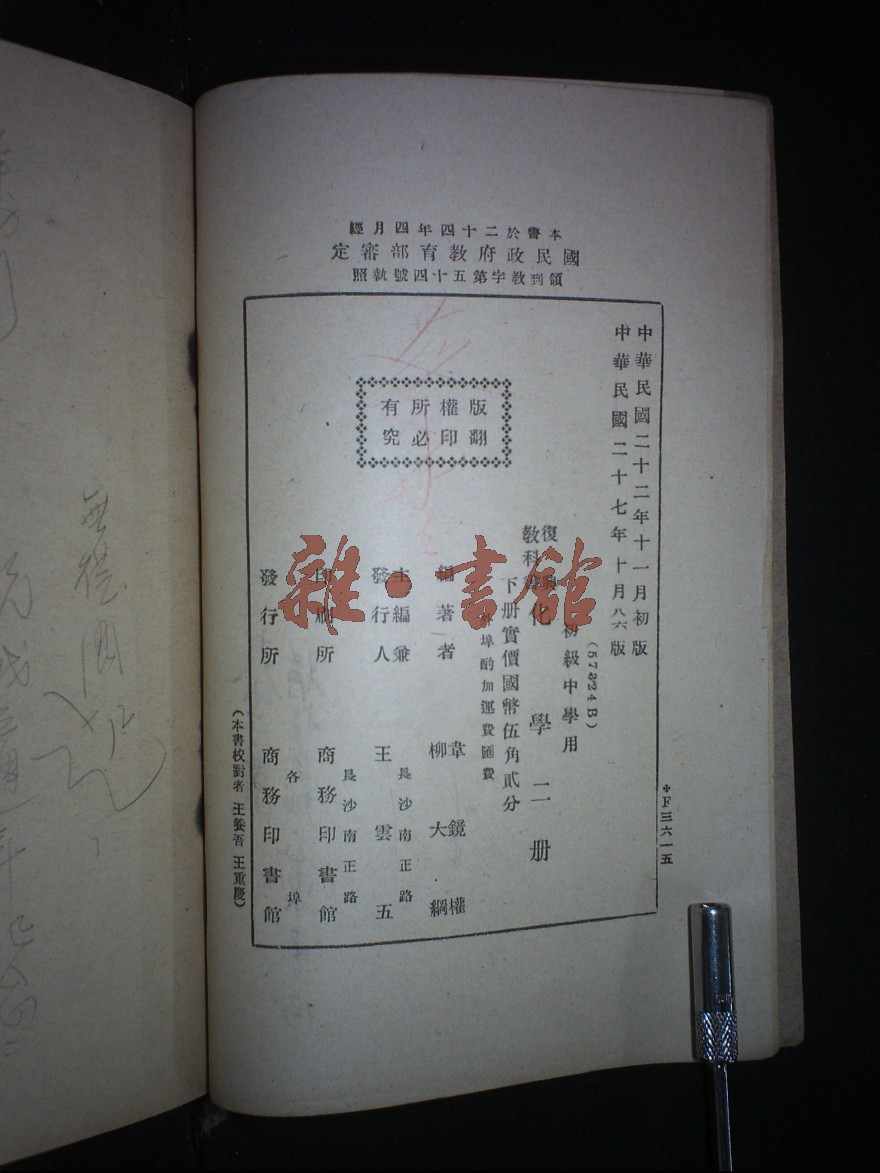 本書於二十四年四月經
國民政府教育部審定
領到教字第五十四號執照
中華民國二十二年十一月初版
中華民國二十七年十月八六版
(57324B)
初級中學用
復興
教科書 化學二册
下册實價國幣伍角貳分
外埠酌加運費匯費
版權所有
翻印必究
編著者 韋鏡權 柳大綱
主編兼發行人 王雲五
長沙南正路
印刷所 商務印書館
長沙南正路
發行所 商務印書館
各埠
(本書校對者 王養吾 王重慶)
*F三六一五
雜·書館